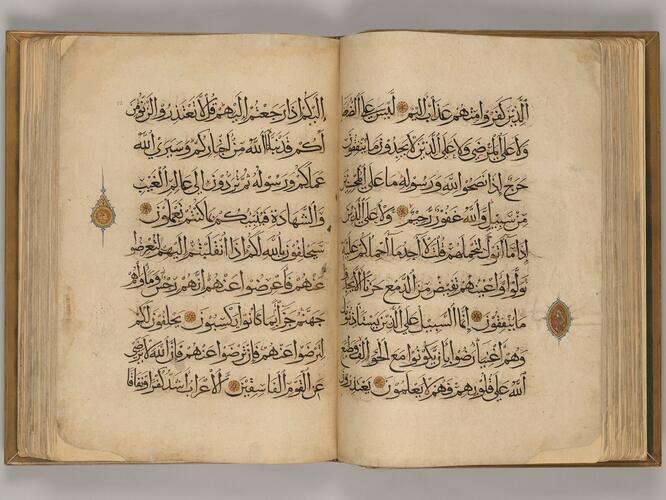 الذين كفروا منهم عذاب اليم ليس على الضعفا
ولا على المرضى ولا على الذين لا يجدون ما ينفقون
حرج اذا نصحوا لله ورسوله ما على المحسنين
من سبيل والله غفور رحيم ولا على الذين
اذا ما اتوك لتحملهم قلت لا اجد ما احملكم عليه
تولوا واعينهم تفيض من الدمع حزنا الا يجدوا
ما ينفقون انما السبيل على الذين يستاذنونك
وهم اغنياء رضوا بان يكونوا مع الخوالف وطبع
الله على قلوبهم فهم لا يعلمون يعتذرون
اليكم اذا رجعتم اليهم قل لا تعتذروا لن نؤمن
لكم قد نبانا الله من اخباركم وسيرى الله
عملكم ورسوله ثم تردون الى عالم الغيب
والشهادة فينبئكم بما كنتم تعملون
سيحلفون بالله لكم اذا انقلبتم اليهم لتعرضوا
عنهم فاعرضوا عنهم انهم رجس وماواهم
جهنم جزاء بما كانوا يكسبون يحلفون لكم
لترضوا عنهم فان ترضوا عنهم فان الله لا يرضى
عن القوم الفاسقين الاعراب اشد كفرا ونفاقا